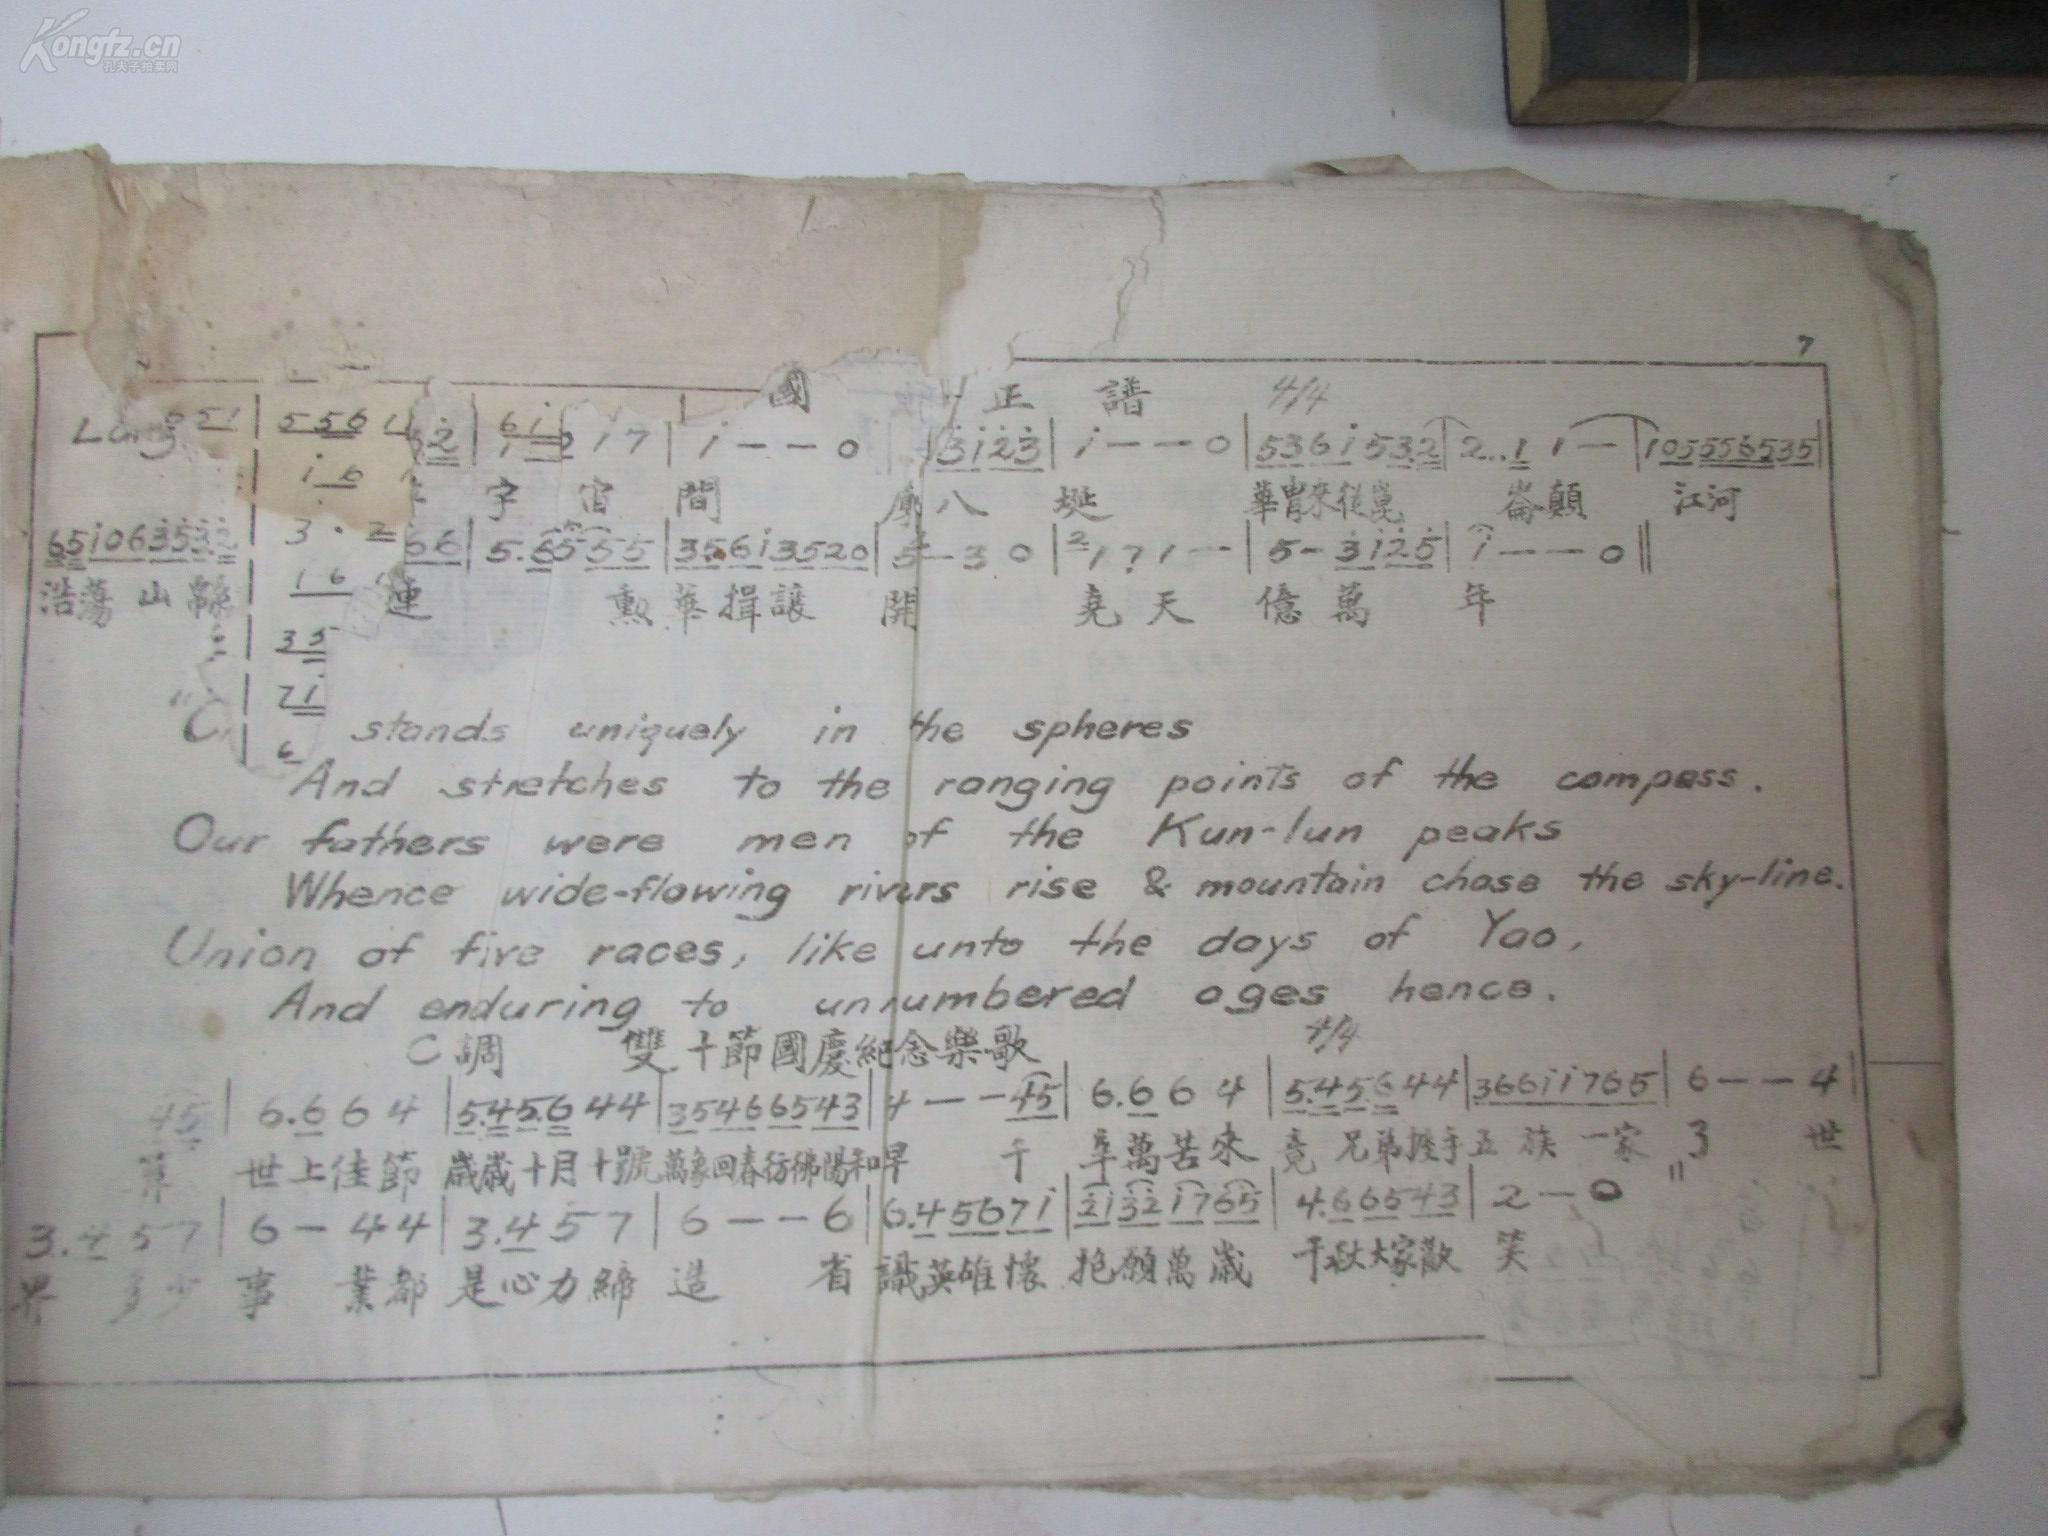 Kongfz.cn
孔夫子拍卖网
7
國 正 譜 4/4
5 5 6 1
1 7 | i — — 0 | 3 i 2 3 | i — — 0 | 5 3 6 i 5 3. 2 | 2 . . 1 1 — | 1 0 5 5 5 6 5 3 5 |
宇 宙 間 廓 八 埏 華 胄 來 從 崑 崙 顛 江 河
6 5 i 0 6 3 5 3 2
6 6 | 5 . 6 5 5 5 | 3 5 6 i 3 5 2 0 | 5 — 3 0 | 2 1 7 1 — | 5 — 3 i 2 5 | i — — — 0 ||
浩 蕩 山 綿 連 勳 華 揖 讓 開 堯 天 億 萬 年
3 5
stands uniquely in the spheres
And stretches to the ranging points of the compass.
Our fathers were men of the Kun-lun peaks
Whence wide-flowing rivers rise & mountain chase the sky-line.
Union of five races, like unto the days of Yao,
And enduring to unnumbered ages hence.
C調 雙十節國慶紀念樂歌 4/4
4 5 | 6 . 6 6 4 | 5 . 4 5 . 6 4 4 | 3 5 4 6 6 5 4 3 | 4 — — 4 5 | 6 . 6 6 4 | 5 . 4 5 . 6 4 4 | 3 6 6 i i 7 6 5 | 6 — — 4 |
世上佳節 歲歲十月十號 萬象回春彷彿陽和早 千 辛萬苦來 竟 兄弟握手五 族 一家 了 世
3 . 4 5 7 | 6 — 4 4 | 3 . 4 5 7 | 6 — — 6 | 6 . 4 5 6 7 i | 2 i 3 2 i 7 6 5 | 4 . 6 6 5 4 3 | 2 — 0 ||
界 多少 事 業都 是心力締 造 省 識英雄懷 抱願萬歲 千秋大家歡 笑